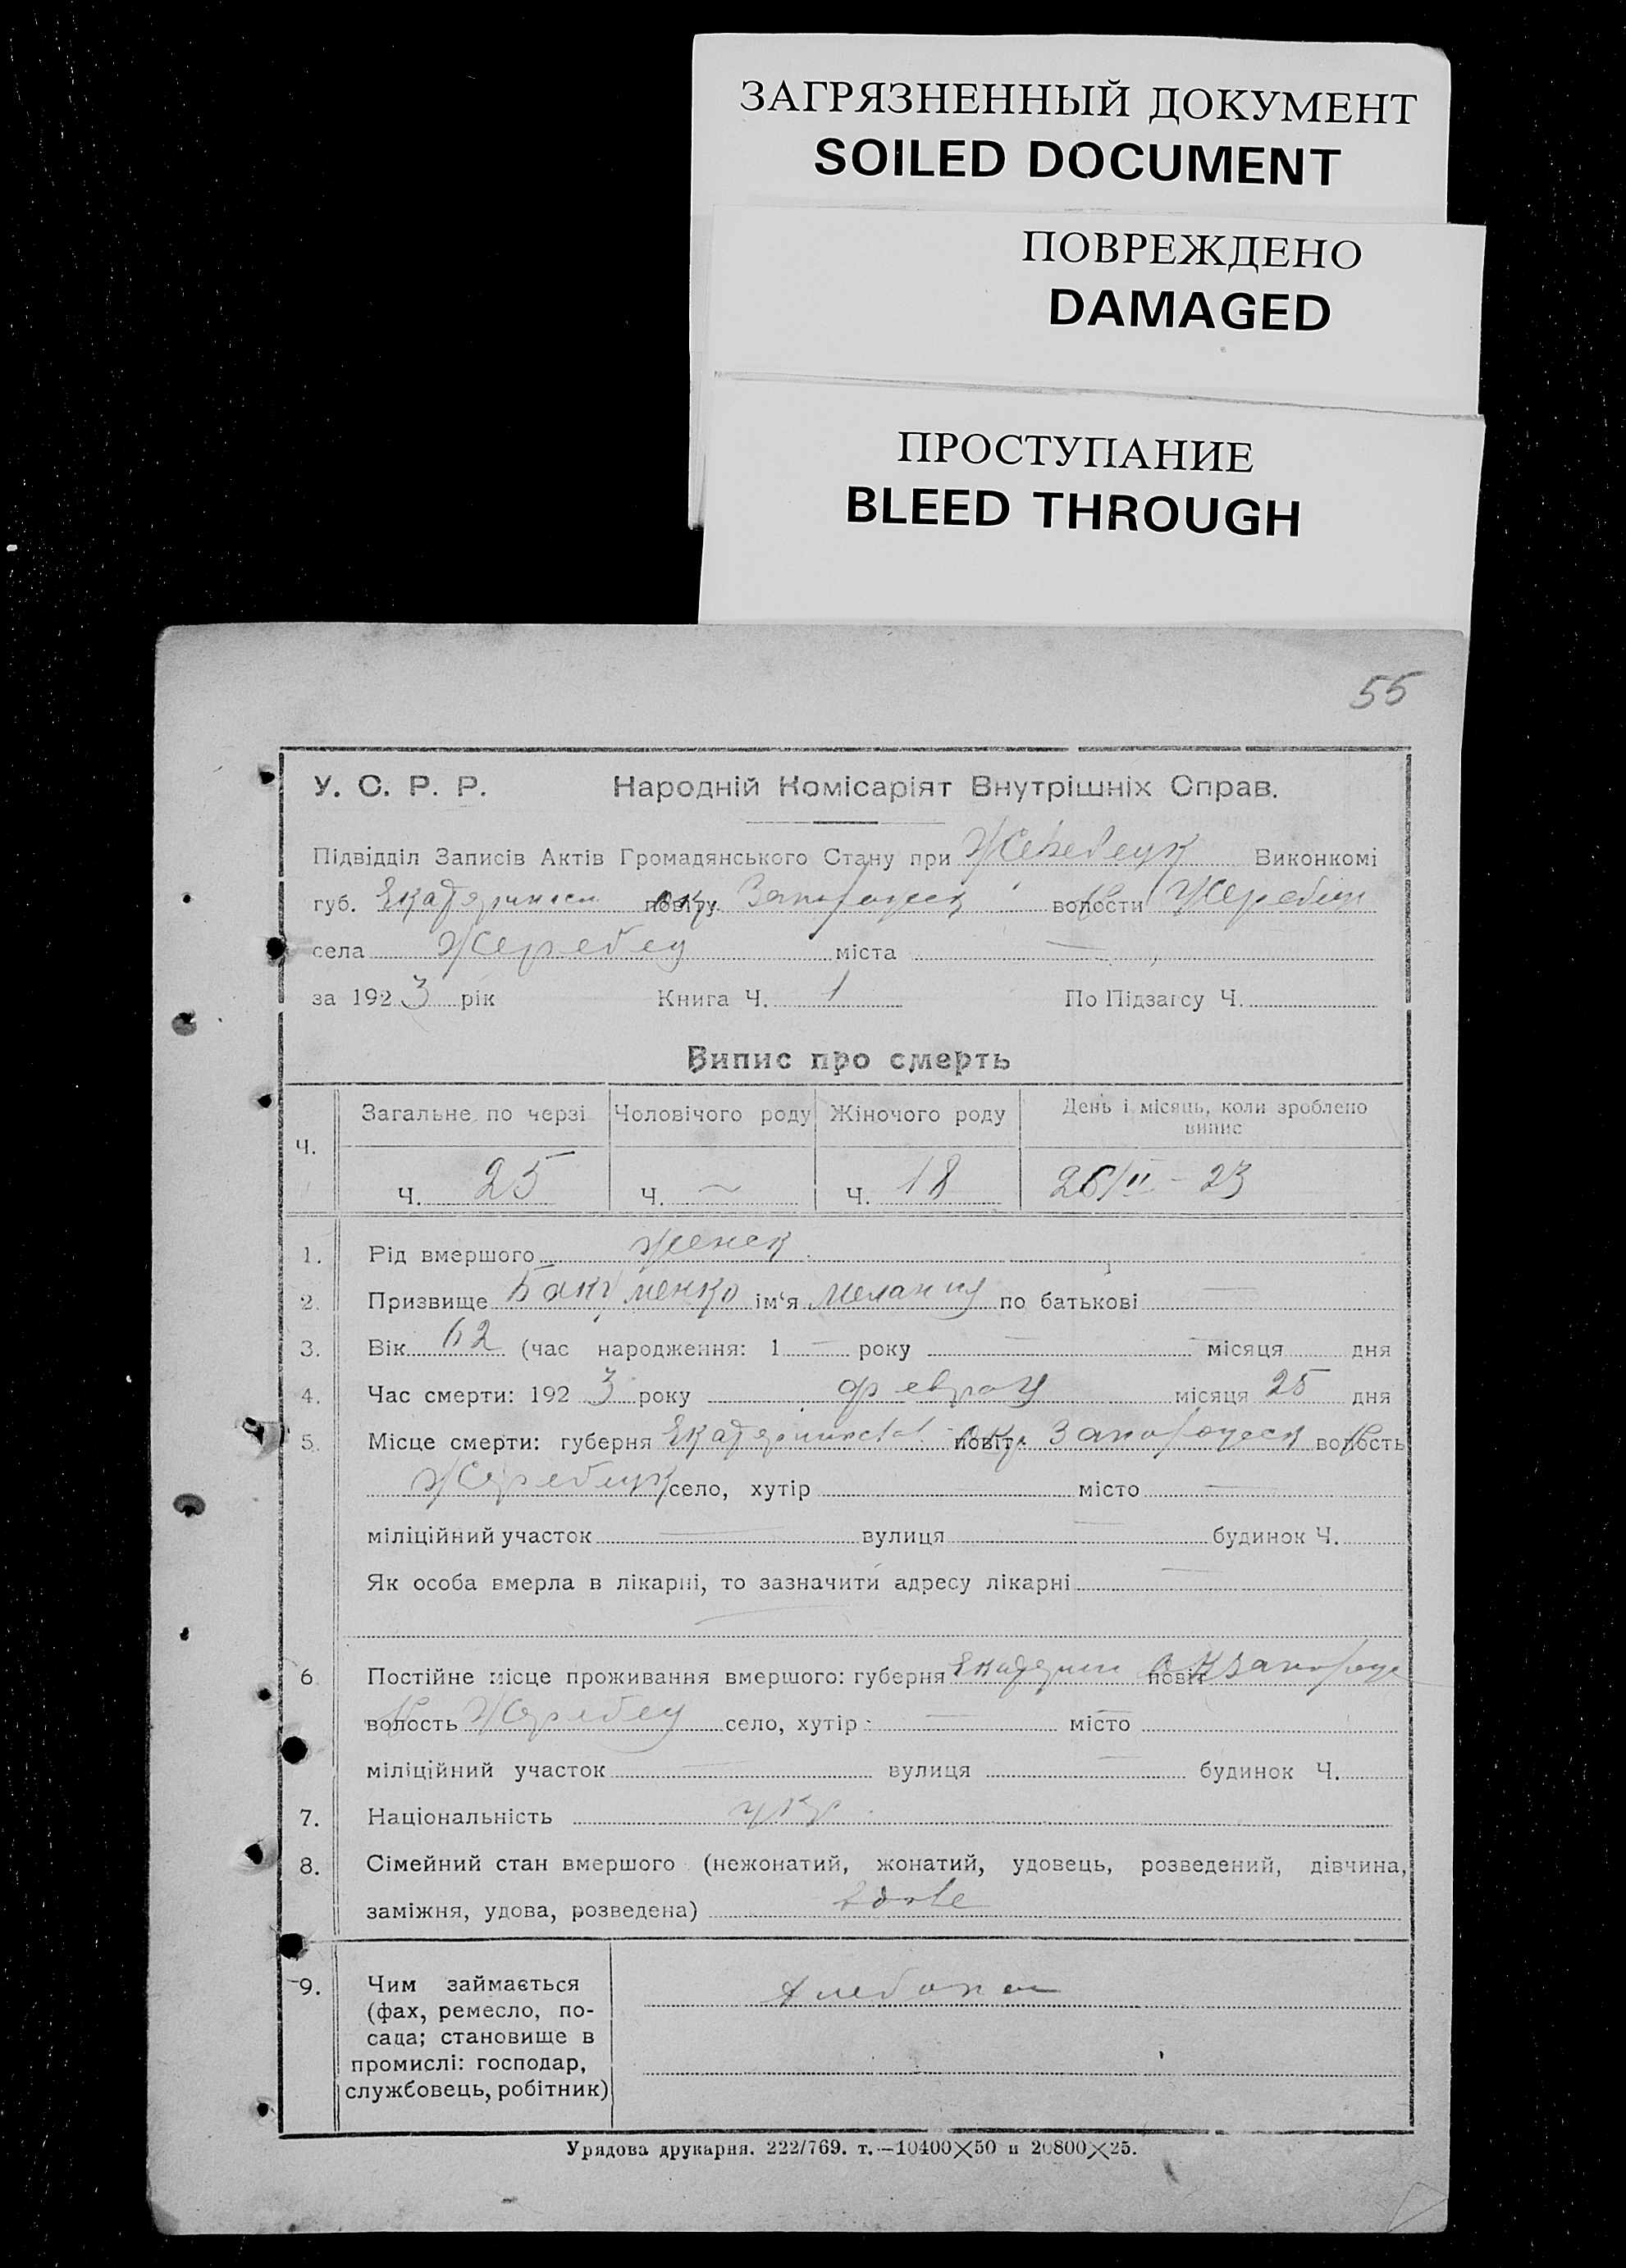 ЗАГРЯЗНЕННЫЙ ДОКУМЕНТ
SOILED DOCUMENT
ПОВРЕЖДЕНО
DAMAGED
ПРОСТУПАНИЕ
BLEED THROUGH
55
У. С. Р. Р. Народній Комісаріят Внутрішніх Справ.
Підвідділ Записів Актів Громадянського Стану при Виконкомі
губ. повіту окр. волости
села Жеребец міста —
за 1923 рік Книга Ч. 1 По Підзагсу Ч.
Випис про смерть
Ч. Загальне по черзі Чоловічого роду Жіночого роду День і місяць, коли зроблено випис
Ч. 25 Ч. ~ Ч. 18 26/II - 23
1. Рід вмершого женск
2. Призвище Бакуменко ім'я Мелания по батькові —
3. Вік 62 (час народження: 1 — року — — місяця дня
4. Час смерти: 1923 року февраля місяця 25 дня
5. Місце смерти: губерня повіт окр. волость
село, хутір місто —
міліційний участок — вулиця — будинок Ч.
Як особа вмерла в лікарні, то зазначити адресу лікарні —
6. Постійне місце проживання вмершого: губерня повіт
волость село, хутір — місто
міліційний участок — вулиця — будинок Ч.
7. Національність укр.
8. Сімейний стан вмершого (нежонатий, жонатий, удовець, розведений, дівчина,
заміжня, удова, розведена)
9. Чим займається
(фах, ремесло, по-
сада; становище в
промислі: господар,
службовець, робітник)
Урядова друкарня. 222/769. т.—10400×50 и 20800×25.